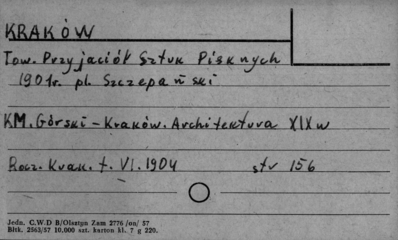 KRAKÓW
Tow. Przyjaciół Sztuk Pięknych
1901r. pl. Szczepański
KM. Górski - Kraków. Architektura XIX w
Rocz. Krak. t. VI. 1904 str 156
Jedn. C.W.D B/Olsztyn Zam 2776 /on/ 57
Bltk. 2563/57 10,000 szt. karton kl. 7 g 220.